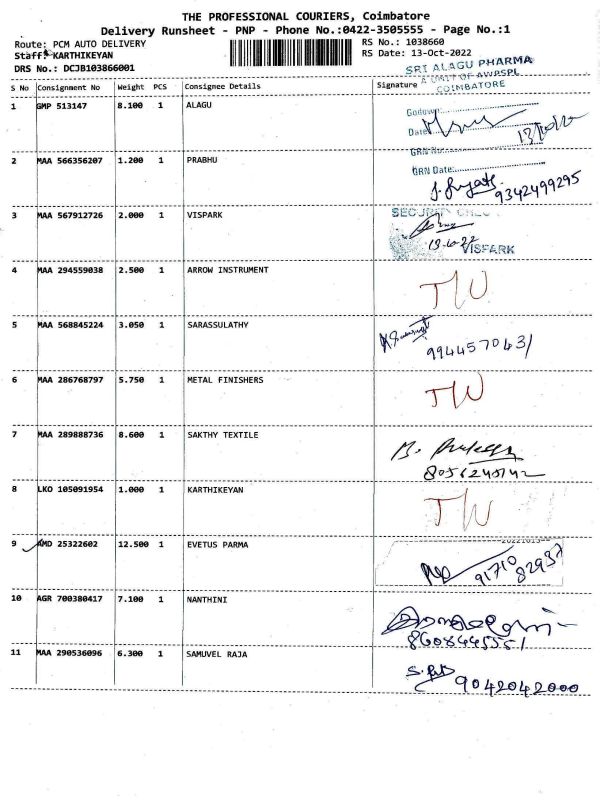 THE PROFESSIONAL COURIERS, Coimbatore
Delivery Runsheet - PNP - Phone No.:0422-3505555 - Page No.:1
Route: PCM AUTO DELIVERY
RS No.: 1038660
Staff: KARTHIKEYAN
RS Date: 13-Oct-2022
DRS No.: DCJB103866001
SRI ALAGU PHARMA
A UNIT OF AWPSPL
COIMBATORE
S No Consignment No Weight PCS Consignee Details Signature
1 GMP 513147 8.100 1 ALAGU
Godown
Date
13/10/22
GRN No
2 MAA 566356207 1.200 1 PRABHU
GRN Date:
9342499295
3 MAA 567912726 2.000 1 VISPARK
SECURITY CHEC
VISPARK
4 MAA 294559038 2.500 1 ARROW INSTRUMENT T/W
5 MAA 568845224 3.050 1 SARASSULATHY
9944570431
6 MAA 286768797 5.750 1 METAL FINISHERS T/W
7 MAA 289888736 8.600 1 SAKTHY TEXTILE
8 LKO 105091954 1.000 1 KARTHIKEYAN T/W
9 AMD 25322602 12.500 1 EVETUS PARMA
91710 82937
10 AGR 700380417 7.100 1 NANTHINI
8608445551
11 MAA 290536096 6.300 1 SAMUVEL RAJA
9042042000